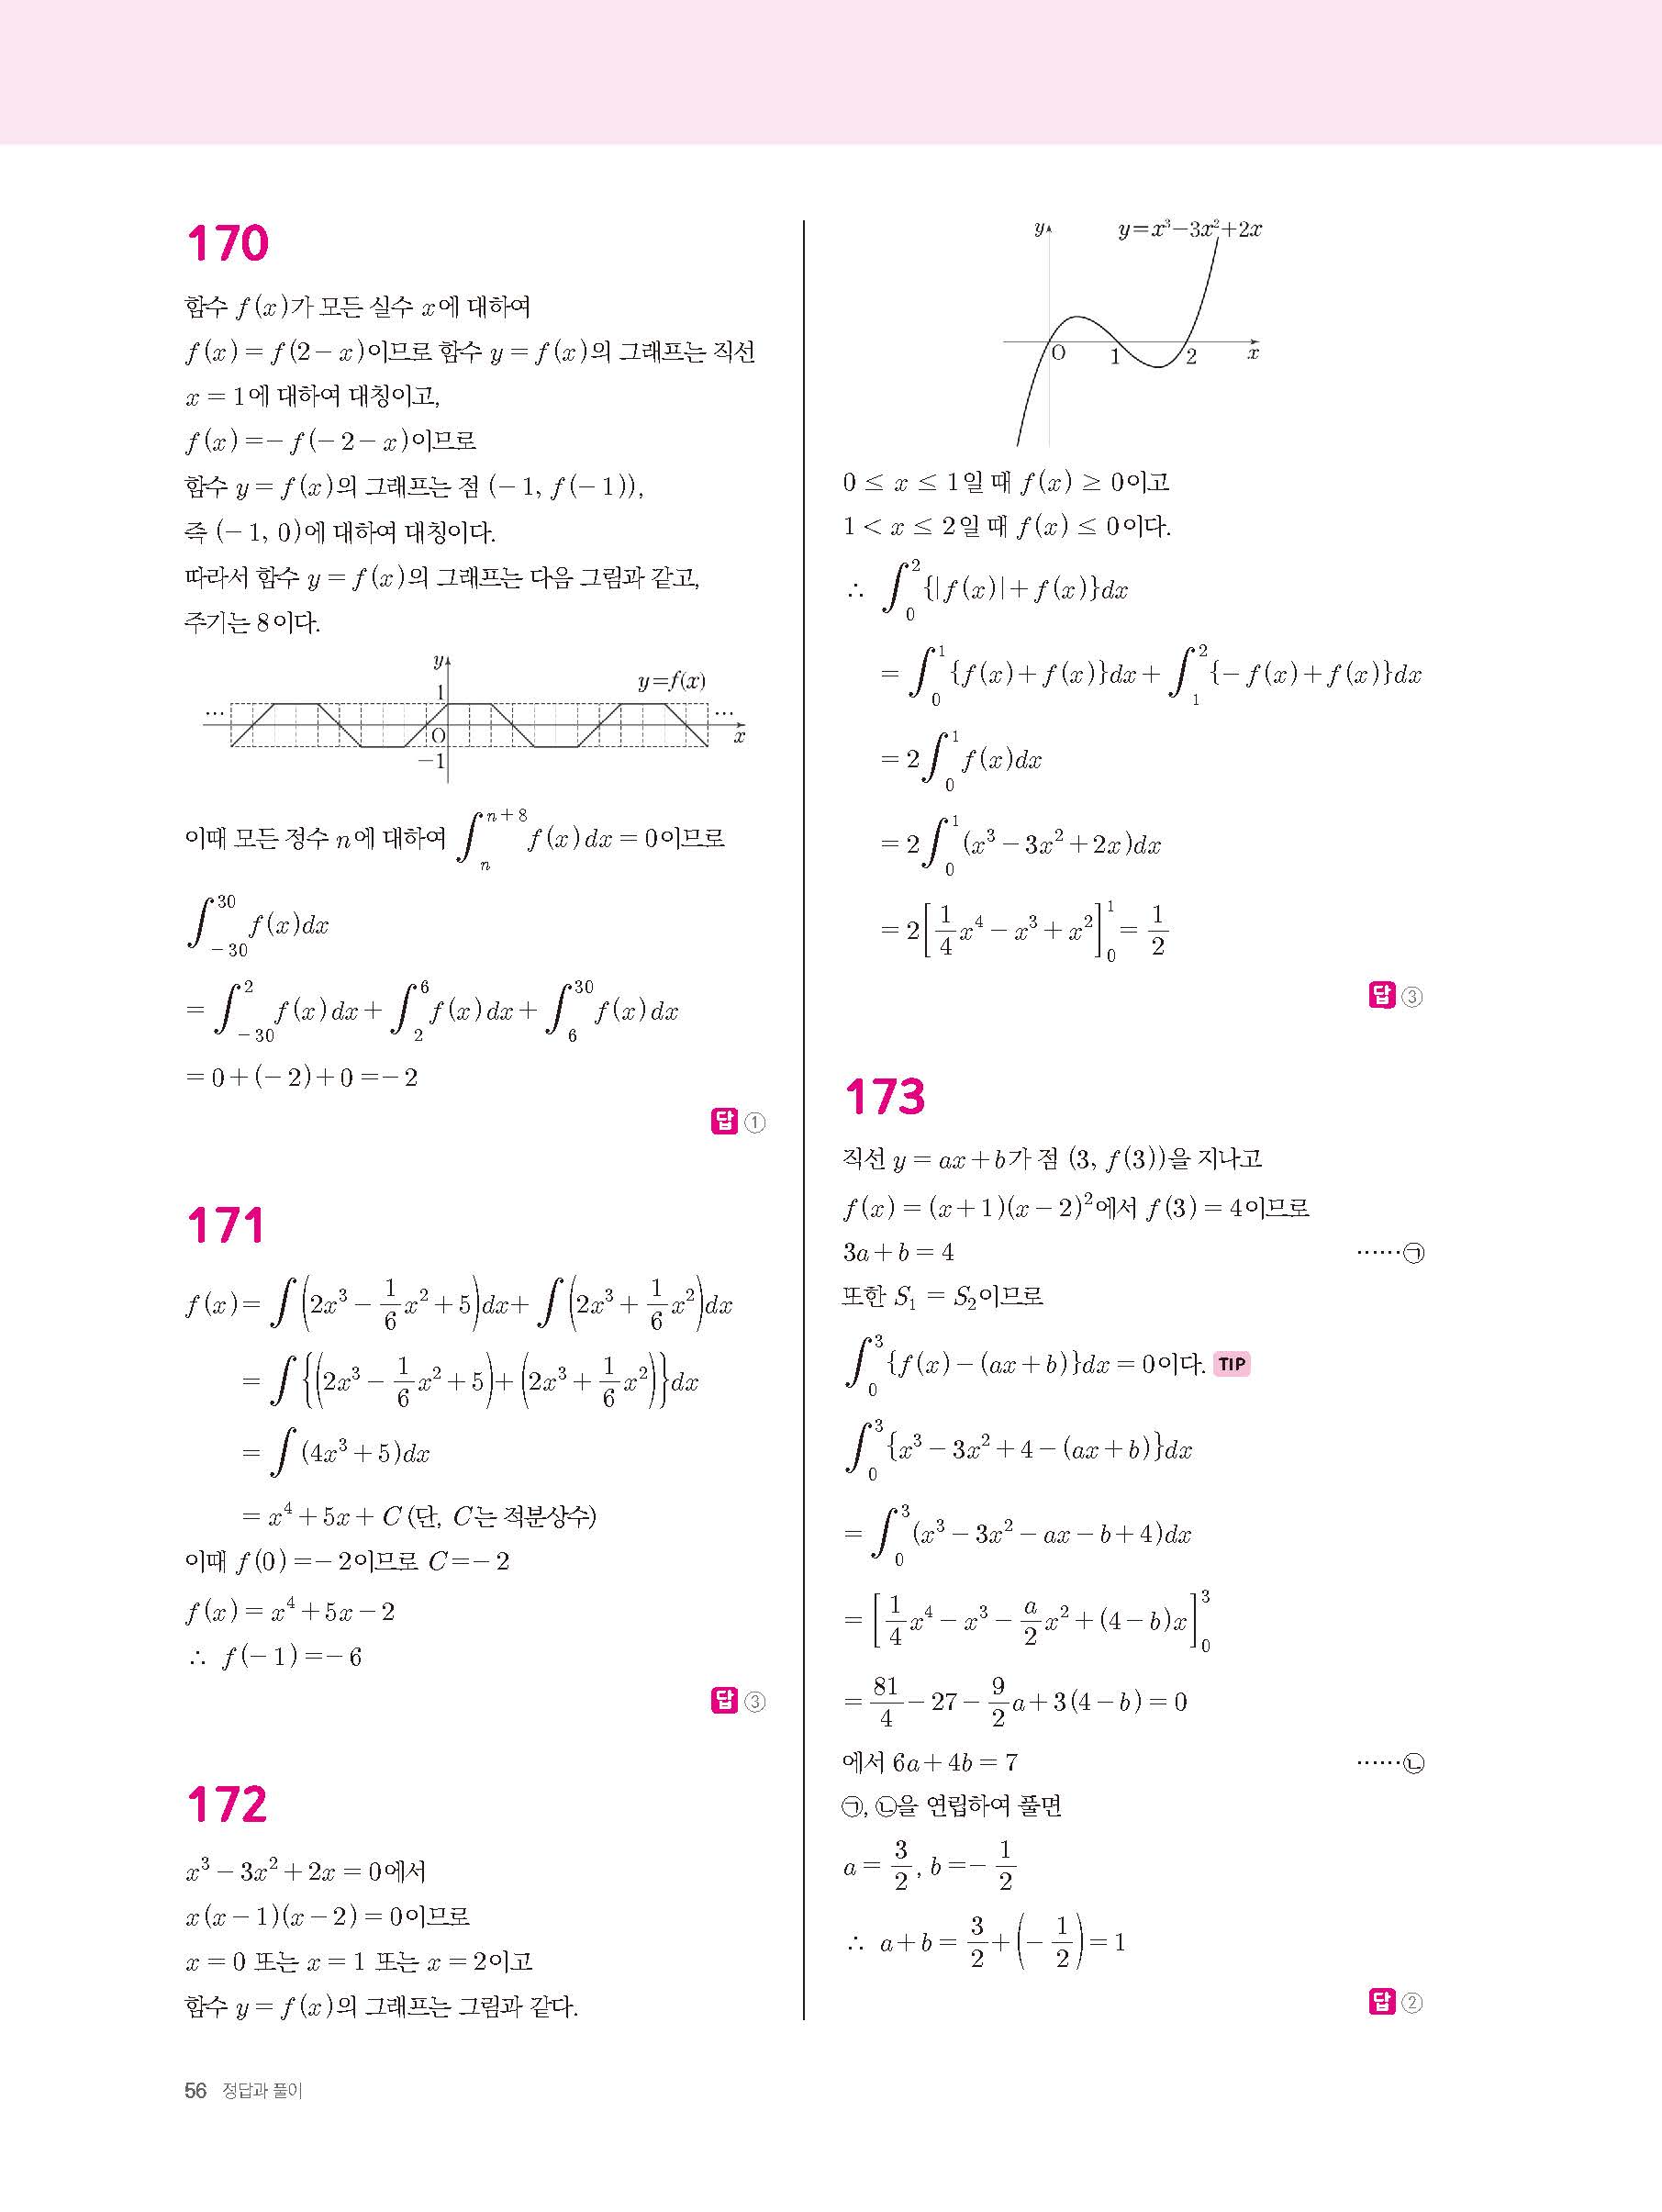 170
함수 f(x)가 모든 실수 x에 대하여
f(x)=f(2-x)이므로 함수 y=f(x)의 그래프는 직선
x=1에 대하여 대칭이고,
f(x)=-f(-2-x)이므로
함수 y=f(x)의 그래프는 점 (-1, f(-1)),
즉 (-1, 0)에 대하여 대칭이다.
따라서 함수 y=f(x)의 그래프는 다음 그림과 같고,
주기는 8이다.
y
y=f(x)
1
… …
O x
-1
이때 모든 정수 n에 대하여 ∫_{n}^{n+8} f(x)dx=0이므로
∫_{-30}^{30} f(x)dx
=∫_{-30}^{2} f(x)dx+∫_{2}^{6} f(x)dx+∫_{6}^{30} f(x)dx
=0+(-2)+0=-2
답 ①
171
f(x)=∫(2x³-\frac{1}{6}x²+5)dx+∫(2x³+\frac{1}{6}x²)dx
=∫{(2x³-\frac{1}{6}x²+5)+(2x³+\frac{1}{6}x²)}dx
=∫(4x³+5)dx
=x⁴+5x+C (단, C는 적분상수)
이때 f(0)=-2이므로 C=-2
f(x)=x⁴+5x-2
∴ f(-1)=-6
답 ③
172
x³-3x²+2x=0에서
x(x-1)(x-2)=0이므로
x=0 또는 x=1 또는 x=2이고
함수 y=f(x)의 그래프는 그림과 같다.
y y=x³-3x²+2x
O 1 2 x
0≤x≤1일 때 f(x)≥0이고
1<x≤2일 때 f(x)≤0이다.
∴ ∫_{0}^{2} {|f(x)|+f(x)}dx
=∫_{0}^{1} {f(x)+f(x)}dx+∫_{1}^{2} {-f(x)+f(x)}dx
=2∫_{0}^{1} f(x)dx
=2∫_{0}^{1} (x³-3x²+2x)dx
=2[\frac{1}{4}x⁴-x³+x²]_{0}^{1}=\frac{1}{2}
답 ③
173
직선 y=ax+b가 점 (3, f(3))을 지나고
f(x)=(x+1)(x-2)²에서 f(3)=4이므로
3a+b=4 ……㉠
또한 S₁=S₂이므로
∫_{0}^{3} {f(x)-(ax+b)}dx=0이다. TIP
∫_{0}^{3} {x³-3x²+4-(ax+b)}dx
=∫_{0}^{3} (x³-3x²-ax-b+4)dx
=[\frac{1}{4}x⁴-x³-\frac{a}{2}x²+(4-b)x]_{0}^{3}
=\frac{81}{4}-27-\frac{9}{2}a+3(4-b)=0
에서 6a+4b=7 ……㉡
㉠, ㉡을 연립하여 풀면
a=\frac{3}{2}, b=-\frac{1}{2}
∴ a+b=\frac{3}{2}+(-\frac{1}{2})=1
답 ②
56 정답과 풀이